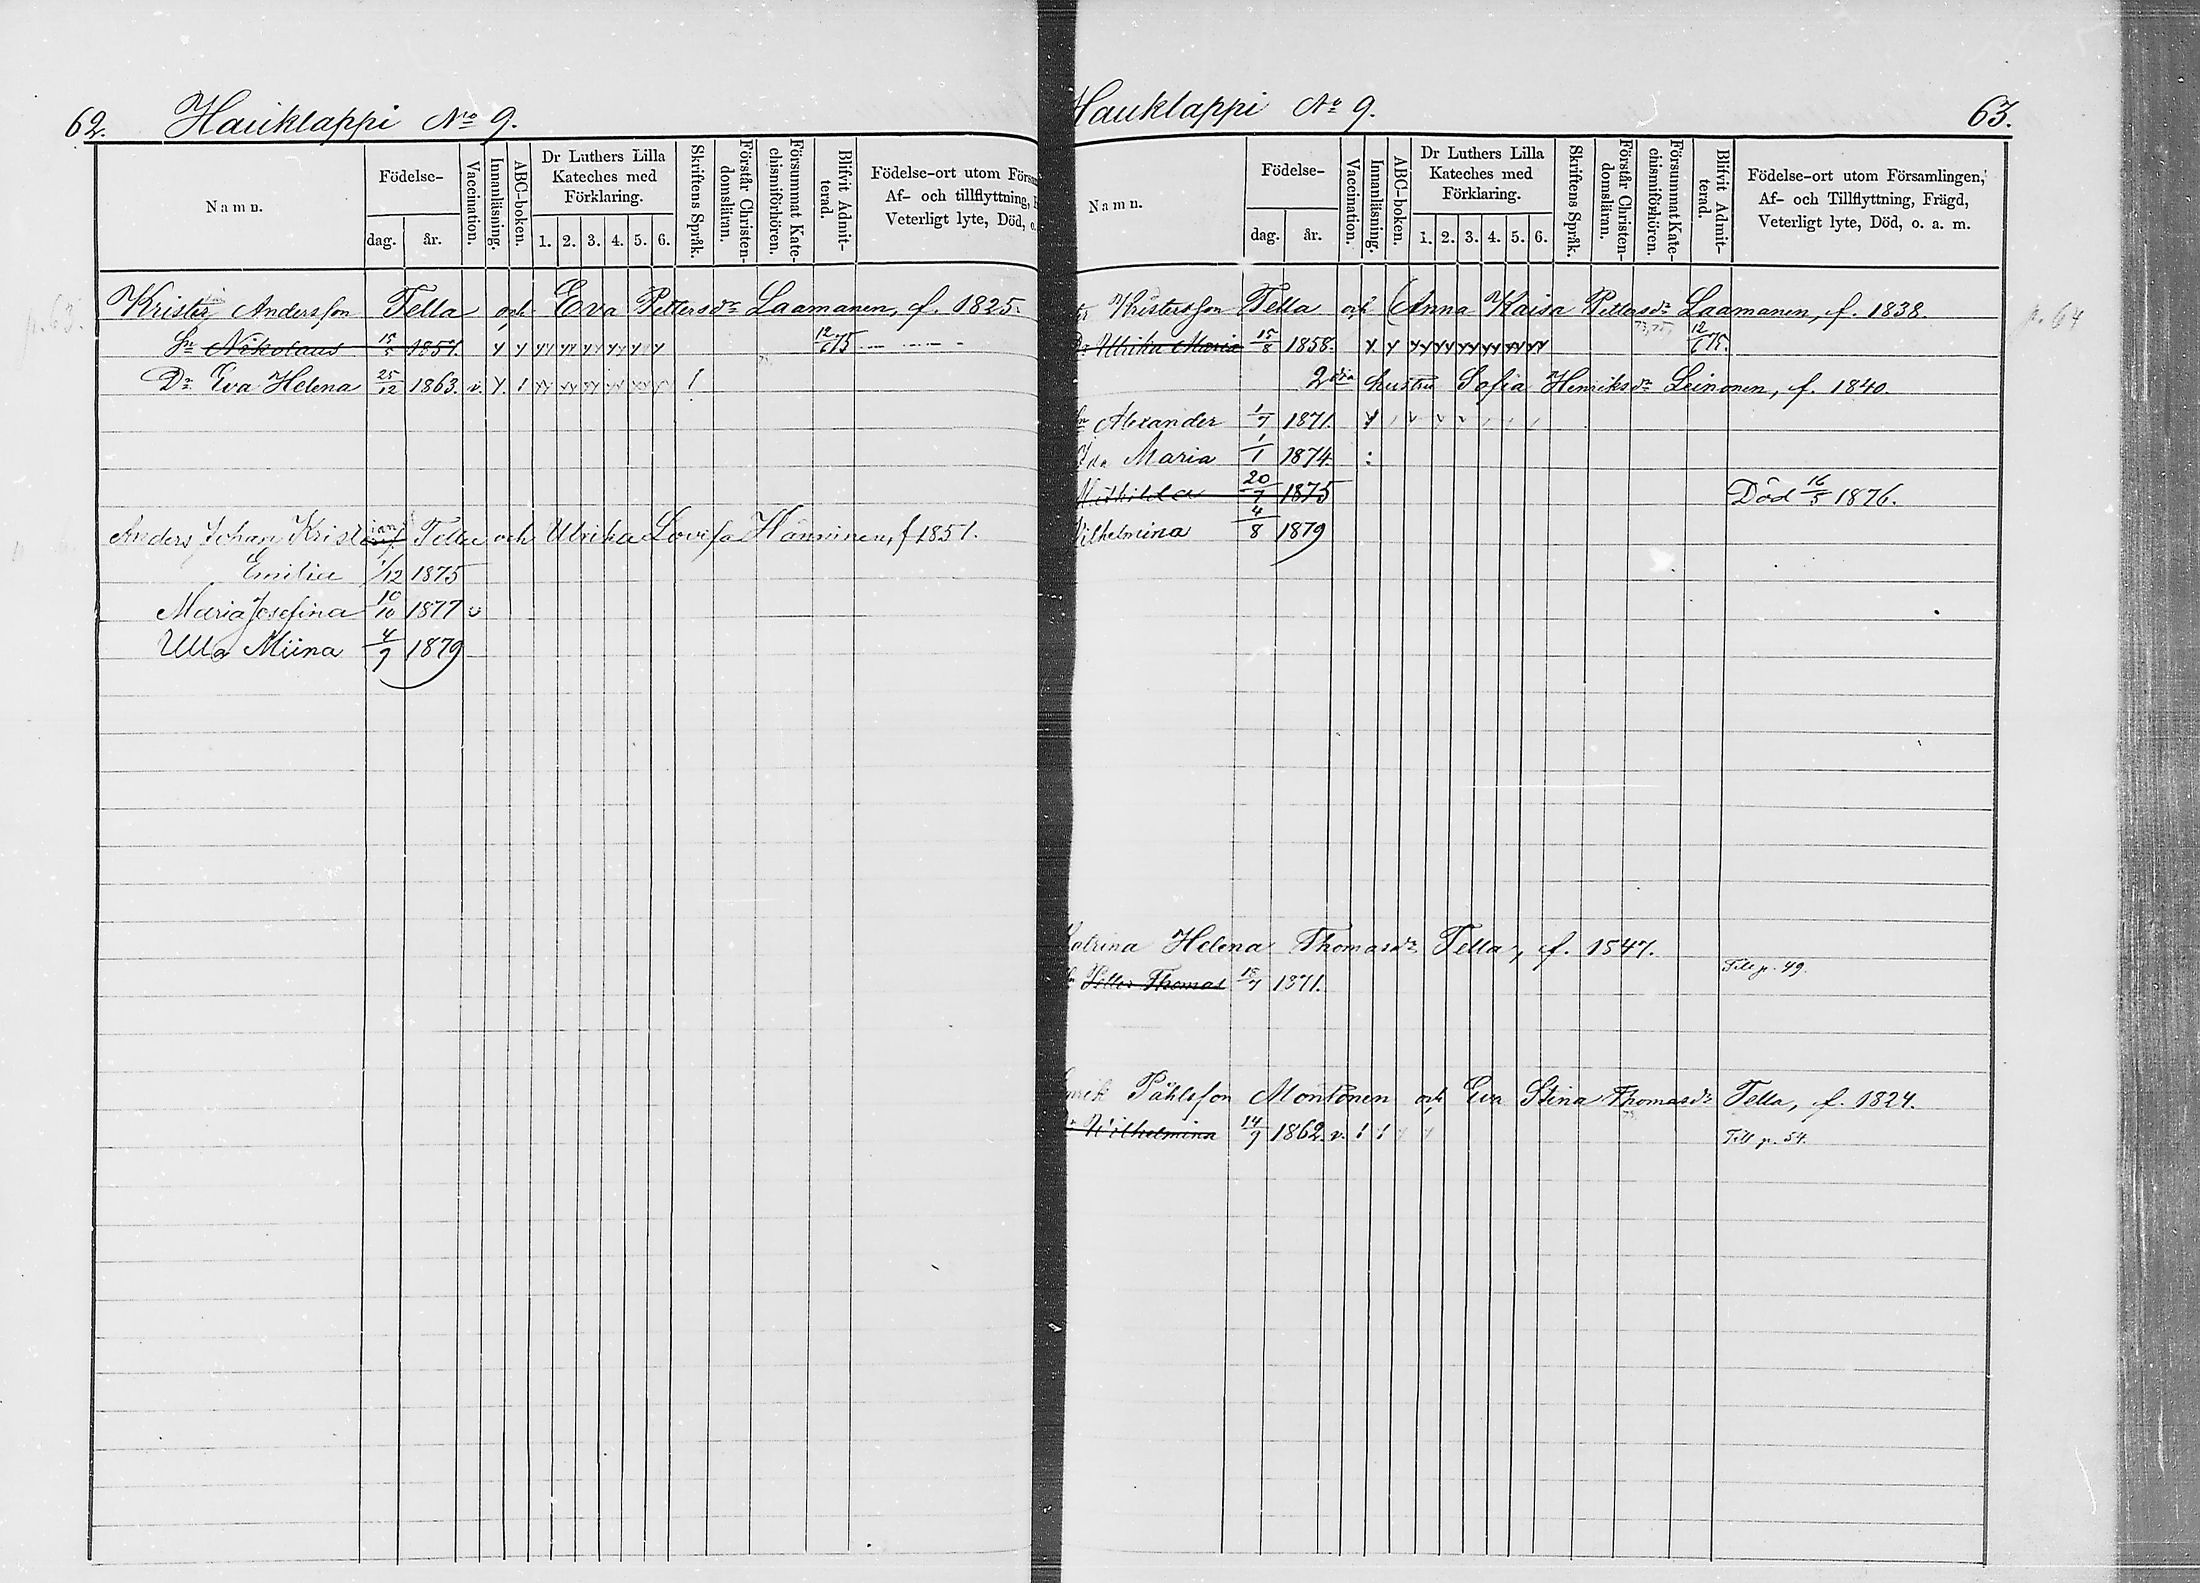 62. Hauklappi No 9.
Namn.
Födelse-
dag.
år.
Vaccination.
Innanläsning.
ABC-boken.
Dr Luthers Lilla
Kateches med
Förklaring.
1. 2. 3. 4. 5. 6.
Skriftens Språk.
Förstår Christen-
domsläran.
Försummat Kate-
chismiförhören.
Blifvit Admit-
terad.
Födelse-ort utom Försam
Af- och tillflyttning,
Veterligt lyte, Död, o.
p. 63.
Krister Andersson Tella och Eva Pettersdr Laamanen, f. 1825.
Sn Nikolaus 15/5 1857. 12/6 75
Dr Eva Helena 25/12 1863. v.
Anders Johan Kristian Tella och Ulrika Lovisa Hänninen, f 1851.
Emilia 1/12 1875
Maria Josefina 10/10 1877 v
Ulla Miina 4/9 1879
Hauklappi No 9. 63.
Namn.
Födelse-
dag.
år.
Vaccination.
Innanläsning.
ABC-boken.
Dr Luthers Lilla
Kateches med
Förklaring.
1. 2. 3. 4. 5. 6.
Skriftens Språk.
Förstår Christen-
domsläran.
Försummat Kate-
chismiförhören.
Blifvit Admit-
terad.
Födelse-ort utom Församlingen,
Af- och Tillflyttning, Frägd,
Veterligt lyte, Död, o. a. m.
Kristersson Tella och (Anna Kaisa Pettersdr Laamanen, f. 1838. p. 64
Dr Ulrika Maria 15/8 1858. 73,75, 12/6 75.
2dra hustru Sofia Henriksdr Leinonen, f. 1840.
Sn Alexander 1/7 1871.
Ida Maria 1/1 1874
Mathilda 20/7 1875 Död 16/5 1876.
Vilhelmina 4/8 1879
Katrina Helena Thomasdr Tella, f. 1847.
Sn Petter Thomas 15/7 1871. Till p. 49.
Påhlsson Montonen och Eva Stina Thomasdr Tella, f. 1824.
Wilhelmina 14/9 1862. v. Till p. 54.